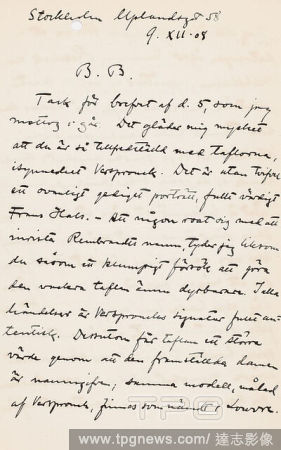 Stockholm Uplandsg. 58
9. XII. 08
B. B.
Tack för brefvet af d. 5, som jag
mottog i går. Det gläder mig mycket
att du är så tillfredsställd med taflorna,
isynnerhet Verspronck. Det är utan tvifvel
ett ovanligt gediget porträtt, fullt värdigt
Frans Hals. – Att någon roat sig med att
inrista Rembrandts namn, tyder jag liksom
du såsom ett klumpigt försök att göra
den vackra taflan ännu dyrbarare. I alla
händelser är Versproncks signatur fullt au-
tentisk. Dessutom får taflan ett större
värde genom att den framställda damen
är namngifven; samma modell, målad
af Verspronck, finnes som nämndt i Louvre.
TPG
www.tpgnews.com/達志影像